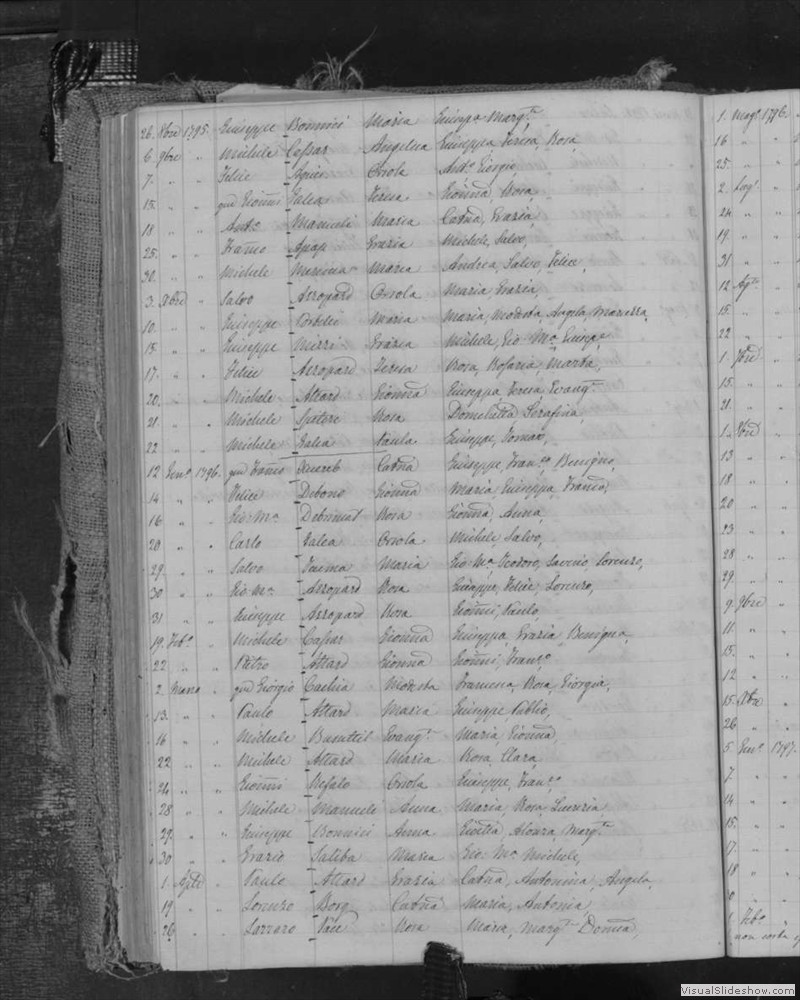 26. 8bre 1795. Giuseppe Bonnici Maria Giuseppa Marg.ta
6. 9bre " Michele Caspar Angelica Giuseppa Teresa Rosa
7. " " Felice Agius Orsola Ant.o Giorgio,
15. " " qm Gionni Galea Teresa Gionna Rosa
18 " " Ant.o Mamuli Maria Catna, Grazia
25. " " Franco Apap Grazia Michele, Salvo,
30. " " Michele Messina Maria Andrea, Salvo, Felice,
3. Xbre " Salvo Azzopard Orsola Maria Grazia,
10. " " Giuseppe Portelli Maria Maria, Modesta, Angela,
15. " " Giuseppe Mizzi Grazia Michele, Gio: Ma. Giusepe
17. " " Felice Azzopard Teresa Rosa, Rosaria, Marta,
20. " " Michele Attard Gionna Giuseppa Teresa Evang.ta
21. " " Michele Spiteri Rosa Serafina,
22 " " Michele Galea Paula Giuseppe,
12 Gen.o 1796. qm Franco Xuereb Catna Giuseppe, Fran.co, Benigno,
14 " " Felice Debono Gionna Maria Giuseppa Franca,
16 " " Gio: Ma. Debrincat Rosa Gionna, Anna,
20 " " Carlo Galea Orsola Michele Salvo,
29. " " Salvo Maria Gio: Ma. Teodoro, Saverio, Lorenzo,
30 " " Gio: Ma. Azzopard Rosa Giuseppe, Felice, Lorenzo,
31 " " Giuseppe Azzopard Rosa Gionni, Paulo,
19. Feb.o " Michele Caspar Gionna Giuseppa Grazia Benigna,
22 " " Pietro Attard Gionna Gionni, Fran.co
2. Marzo " qm Giorgio Cachia Modesta Francesca, Rosa, Giorgia,
13. " " Paulo Attard Maria Giuseppe Publio,
16 " " Michele Busuttil Evang.ta Maria, Gionna,
22 " " Michele Attard Maria Rosa, Clara,
24 " " Gionni Refalo Orsola Giuseppe, Fran.co
28 " " Michele Mamuli Anna Maria, Rosa, Lucrezia
29. " " Giuseppe Bonnici Anna Marg.ta
30 " " Grazio Saliba Maria Gio: Ma. Michele,
1. Aple " Paulo Attard Grazia Catna, Antonina, Angela,
19 " " Lorenzo Borg Catna Maria, Antonia,
26 " " Lazzaro Rosa Maria, Marg.ta
1. Mag.o 1796.
16 " "
25. " "
2. Lug.
24 " "
19. " "
31 " "
12 Ag.to
15. " "
22 " "
1. 7bre
15. " "
21. " "
1. 8bre
13 " "
18 " "
20 " "
23. " "
28 " "
29. " "
9. 9bre
11. " "
15. " "
12 " "
15. Xbre
26 " "
5. Gen.o 1797.
7. " "
14 " "
15. " "
17. " "
18 " "
Feb.o
VisualSlideshow.com